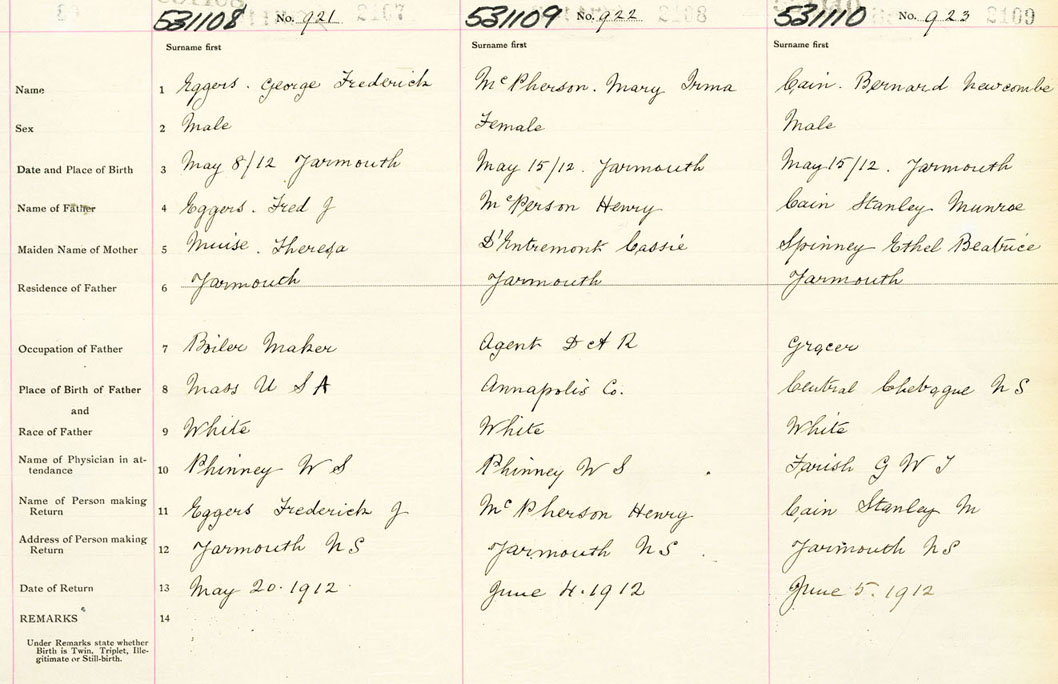 531108 No. 921 2107 531109 No. 922 2108 531110 No. 923 2109
Surname first Surname first Surname first
Name 1 Eggers. George Frederick McPherson. Mary Irma Cain. Bernard Newcombe
Sex 2 Male Female Male
Date and Place of Birth 3 May 8/12 Yarmouth May 15/12. Yarmouth May 15/12. Yarmouth
Name of Father 4 Eggers. Fred J McPerson Henry Cain Stanley Munroe
Maiden Name of Mother 5 Muise. Theresa D'Entremont Cassie Spinney Ethel Beatrice
Residence of Father 6 Yarmouth Yarmouth Yarmouth
Occupation of Father 7 Boiler Maker Agent D A R Grocer
Place of Birth of Father 8 Mass U S A Annapolis Co. Central Chebogue N S
and
Race of Father 9 White White White
Name of Physician in at-
tendance 10 Phinney W S Phinney W S Farish G W T
Name of Person making
Return 11 Eggers Frederick J McPherson Henry Cain Stanley M
Address of Person making
Return 12 Yarmouth N S Yarmouth N S. Yarmouth N S
Date of Return 13 May 20. 1912 June 4. 1912 June 5. 1912
REMARKS 14
Under Remarks state whether
Birth is Twin, Triplet, Ille-
gitimate or Still-birth.